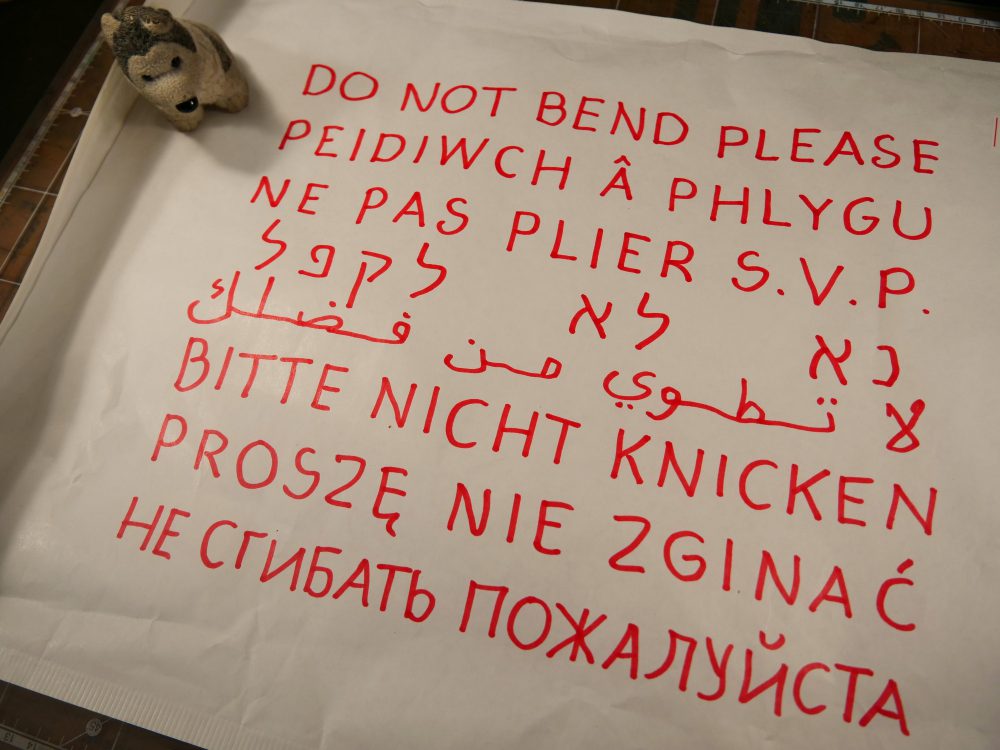 DO NOT BEND PLEASE
PEIDIWCH Â PHLYGU
NE PAS PLIER S.V.P.
נא לא לקפל
لا تطوي من فضلك
BITTE NICHT KNICKEN
PROSZĘ NIE ZGINAĆ
НЕ СГИБАТЬ ПОЖАЛУЙСТА